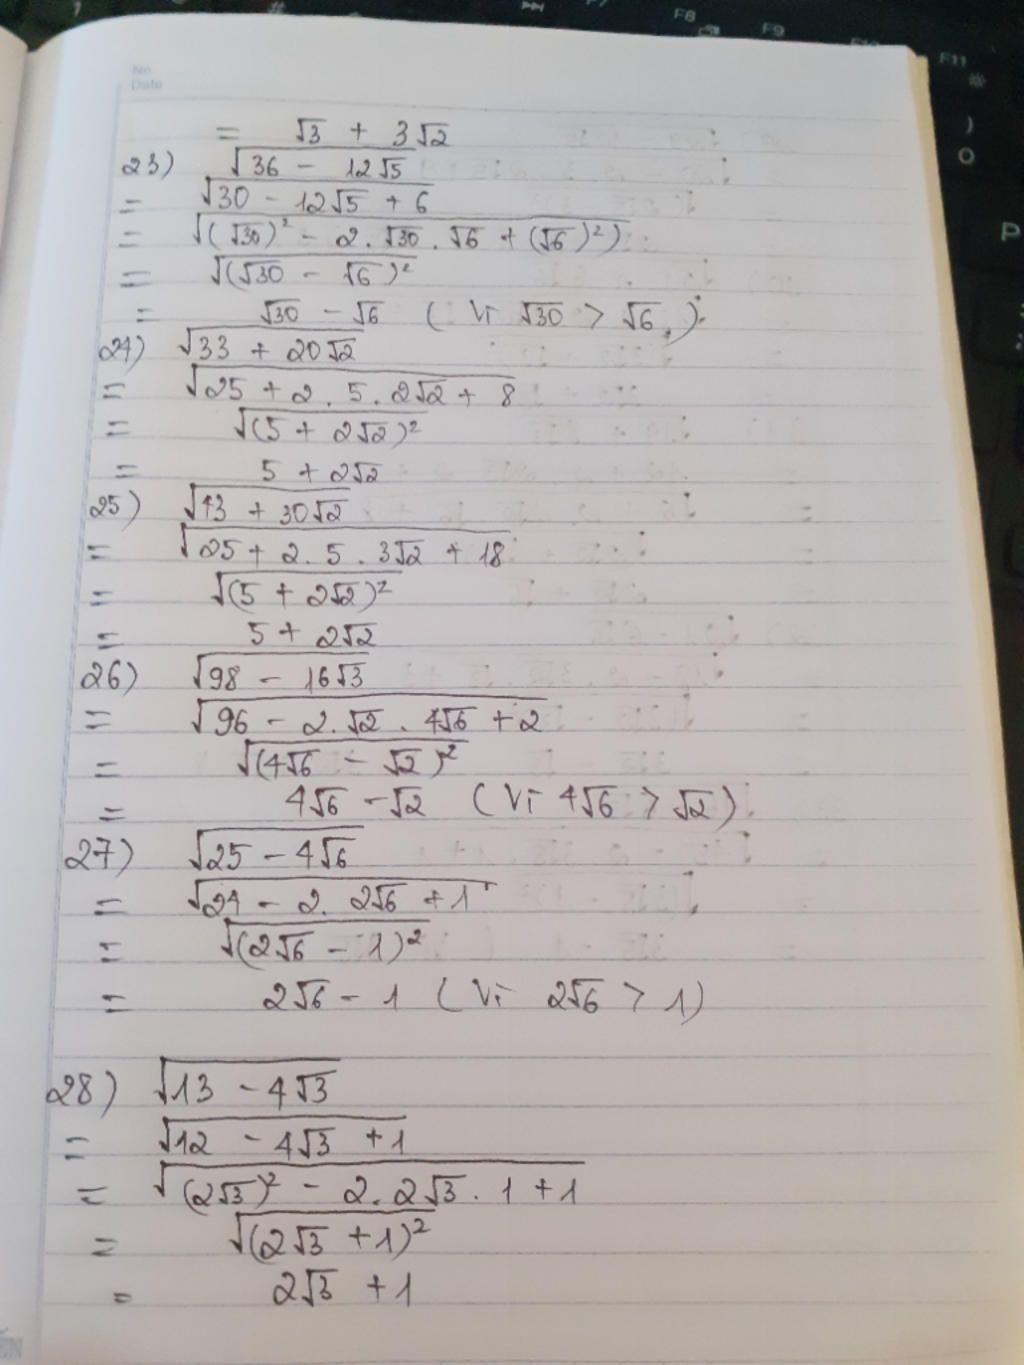 No.
Date
= √3 + 3√2
23) √(36 - 12√5)
= √(30 - 12√5 + 6)
= √((√30)² - 2.√30.√6 + (√6)²)
= √((√30 - √6)²)
= √30 - √6 (Vì √30 > √6)
24) √(33 + 20√2)
= √(25 + 2.5.2√2 + 8)
= √((5 + 2√2)²)
= 5 + 2√2
25) √(43 + 30√2)
= √(25 + 2.5.3√2 + 18)
= √((5 + 2√2)²)
= 5 + 2√2
26) √(98 - 16√3)
= √(96 - 2.√2.4√6 + 2)
= √((4√6 - √2)²)
= 4√6 - √2 (Vì 4√6 > √2)
27) √(25 - 4√6)
= √(24 - 2.2√6 + 1)
= √((2√6 - 1)²)
= 2√6 - 1 (Vì 2√6 > 1)
28) √(13 - 4√3)
= √(12 - 4√3 + 1)
= √((2√3)² - 2.2√3.1 + 1)
= √((2√3 + 1)²)
= 2√3 + 1
F8
F9
F11
)
0
P